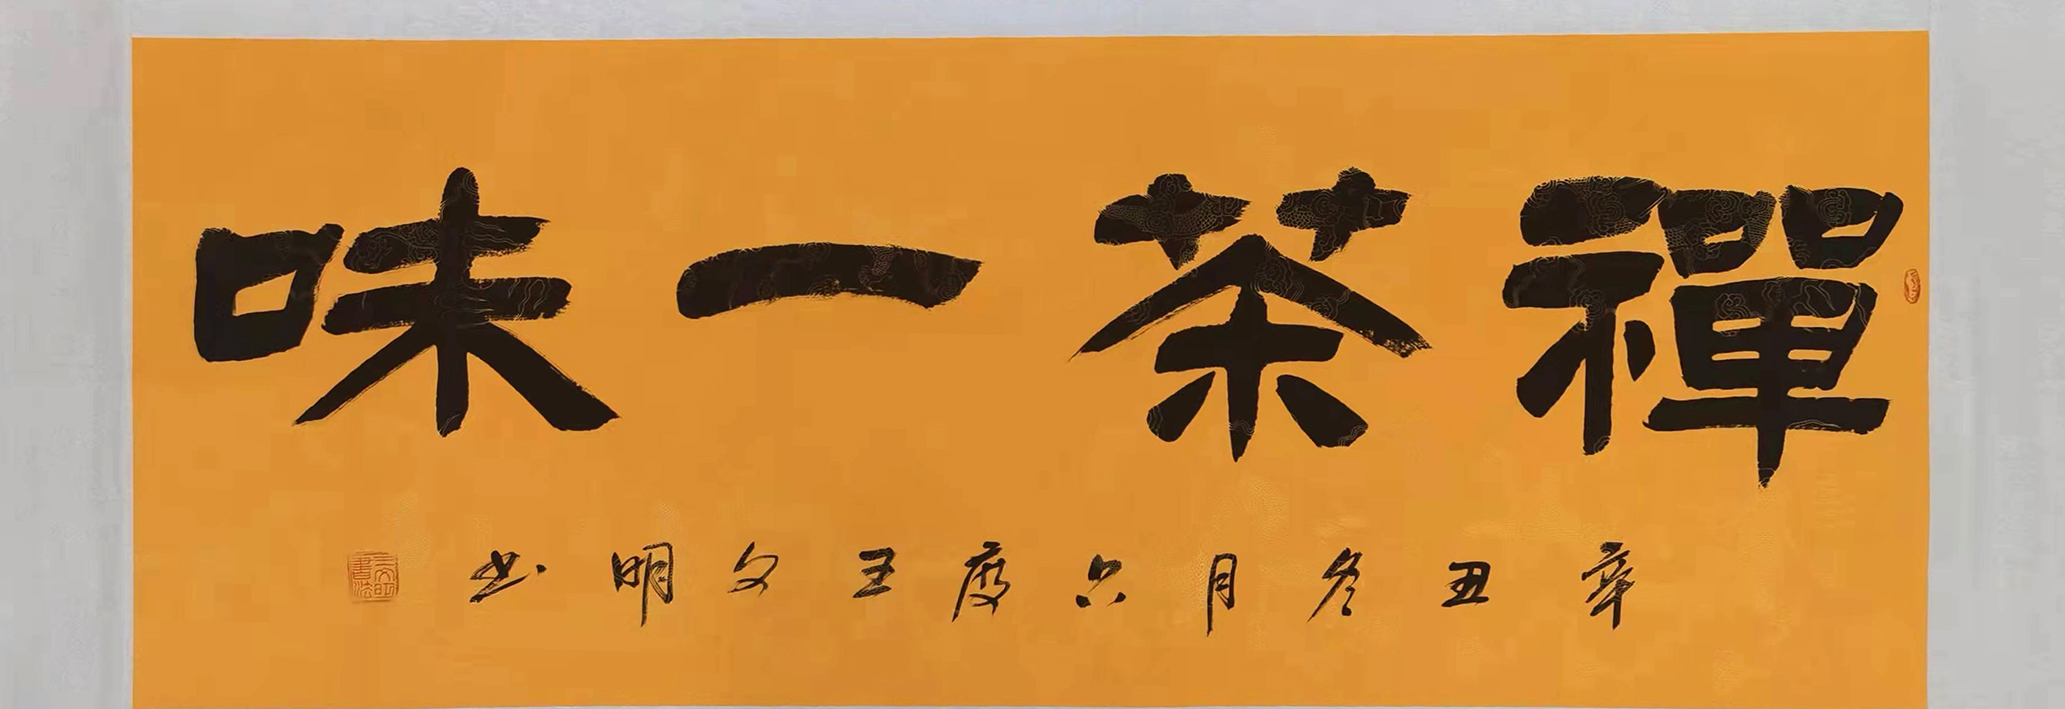 禪茶一味
辛丑冬月六度王文明书